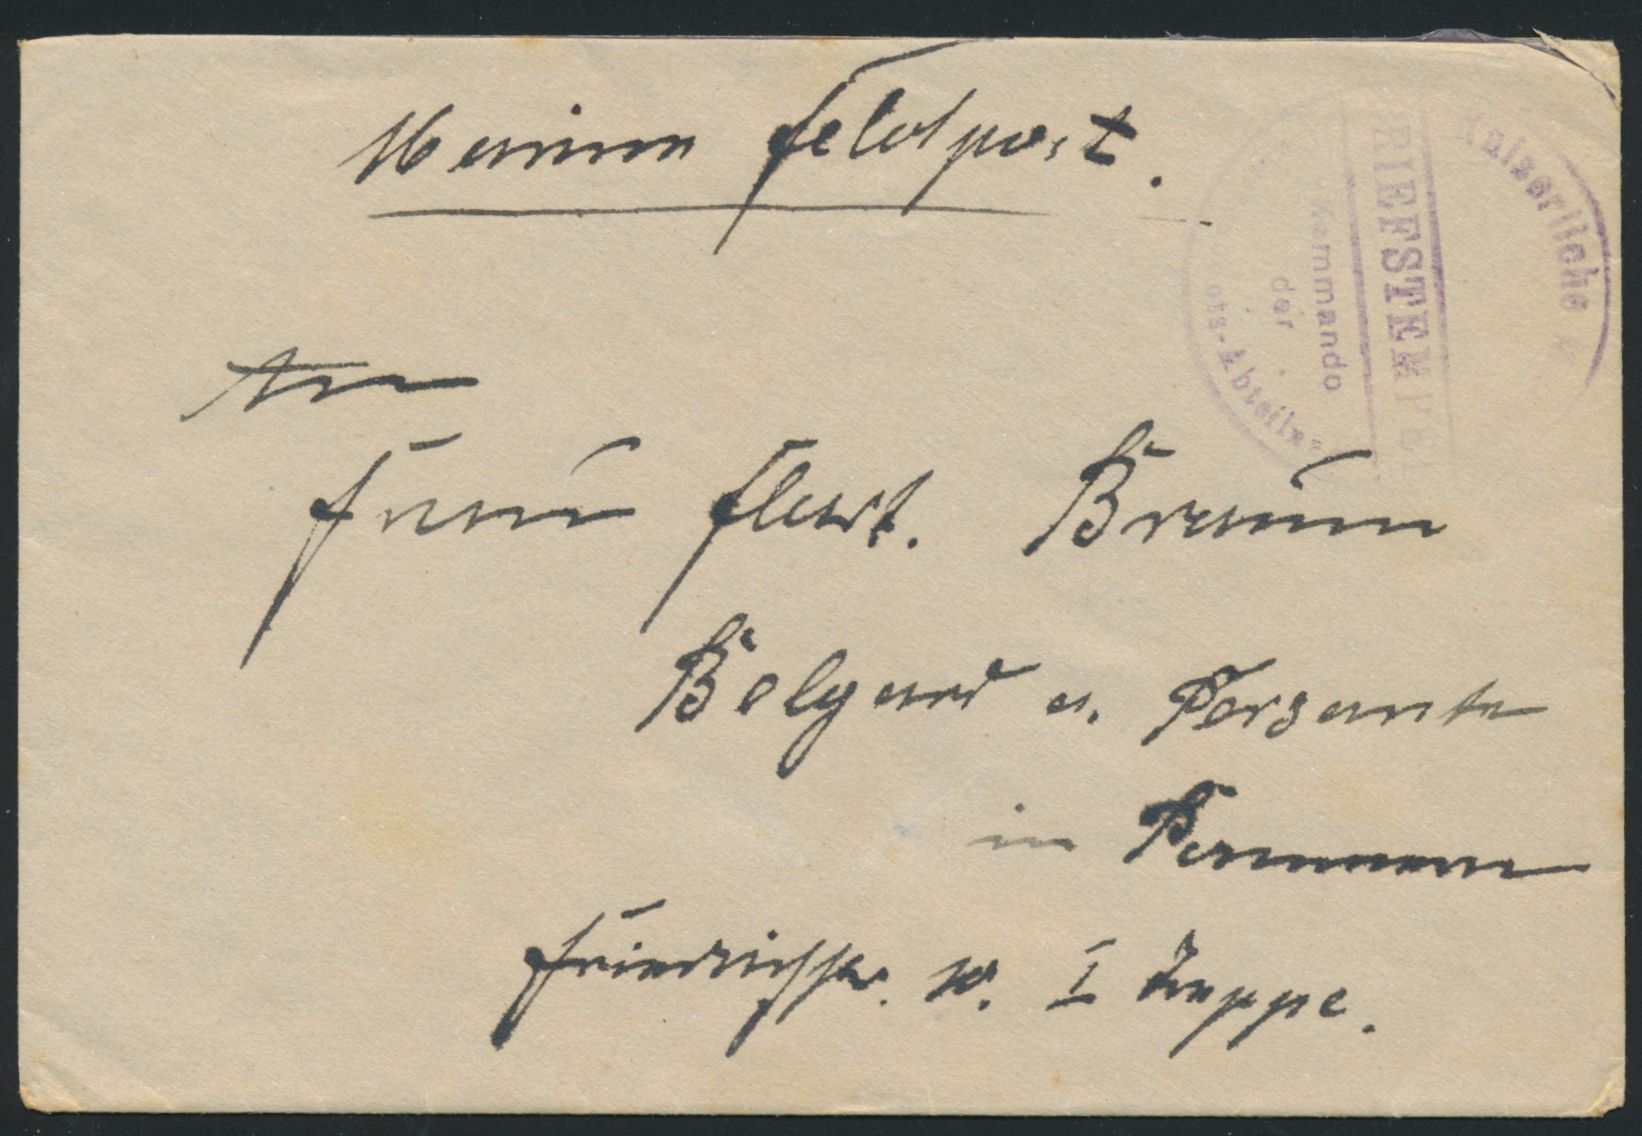 Marine Feldpost.
An
Frau Flert. Braun
Belgard a. Persante
in Pommern
Friedrichstr. I Treppe.
Kaiserliche
BRIEFSTEMPEL
Kommando
der
Abteilung